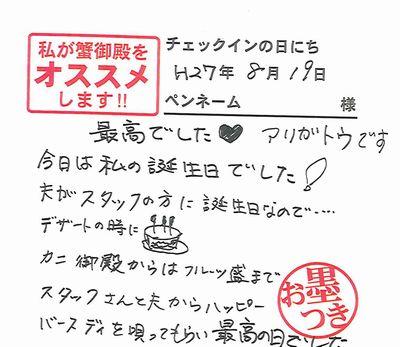 私が蟹御殿を
オススメ
します!!
チェックインの日にち
H27年 8月 19日
ペンネーム 様
最高でした♥ アリガトウです
今日は私の誕生日でした!
夫がスタッフの方に誕生日なので……
デザートの時に
カニ御殿からはフルーツ盛まで
スタッフさんと夫からハッピー
バースディを唄ってもらい最高の日でした
お墨つき